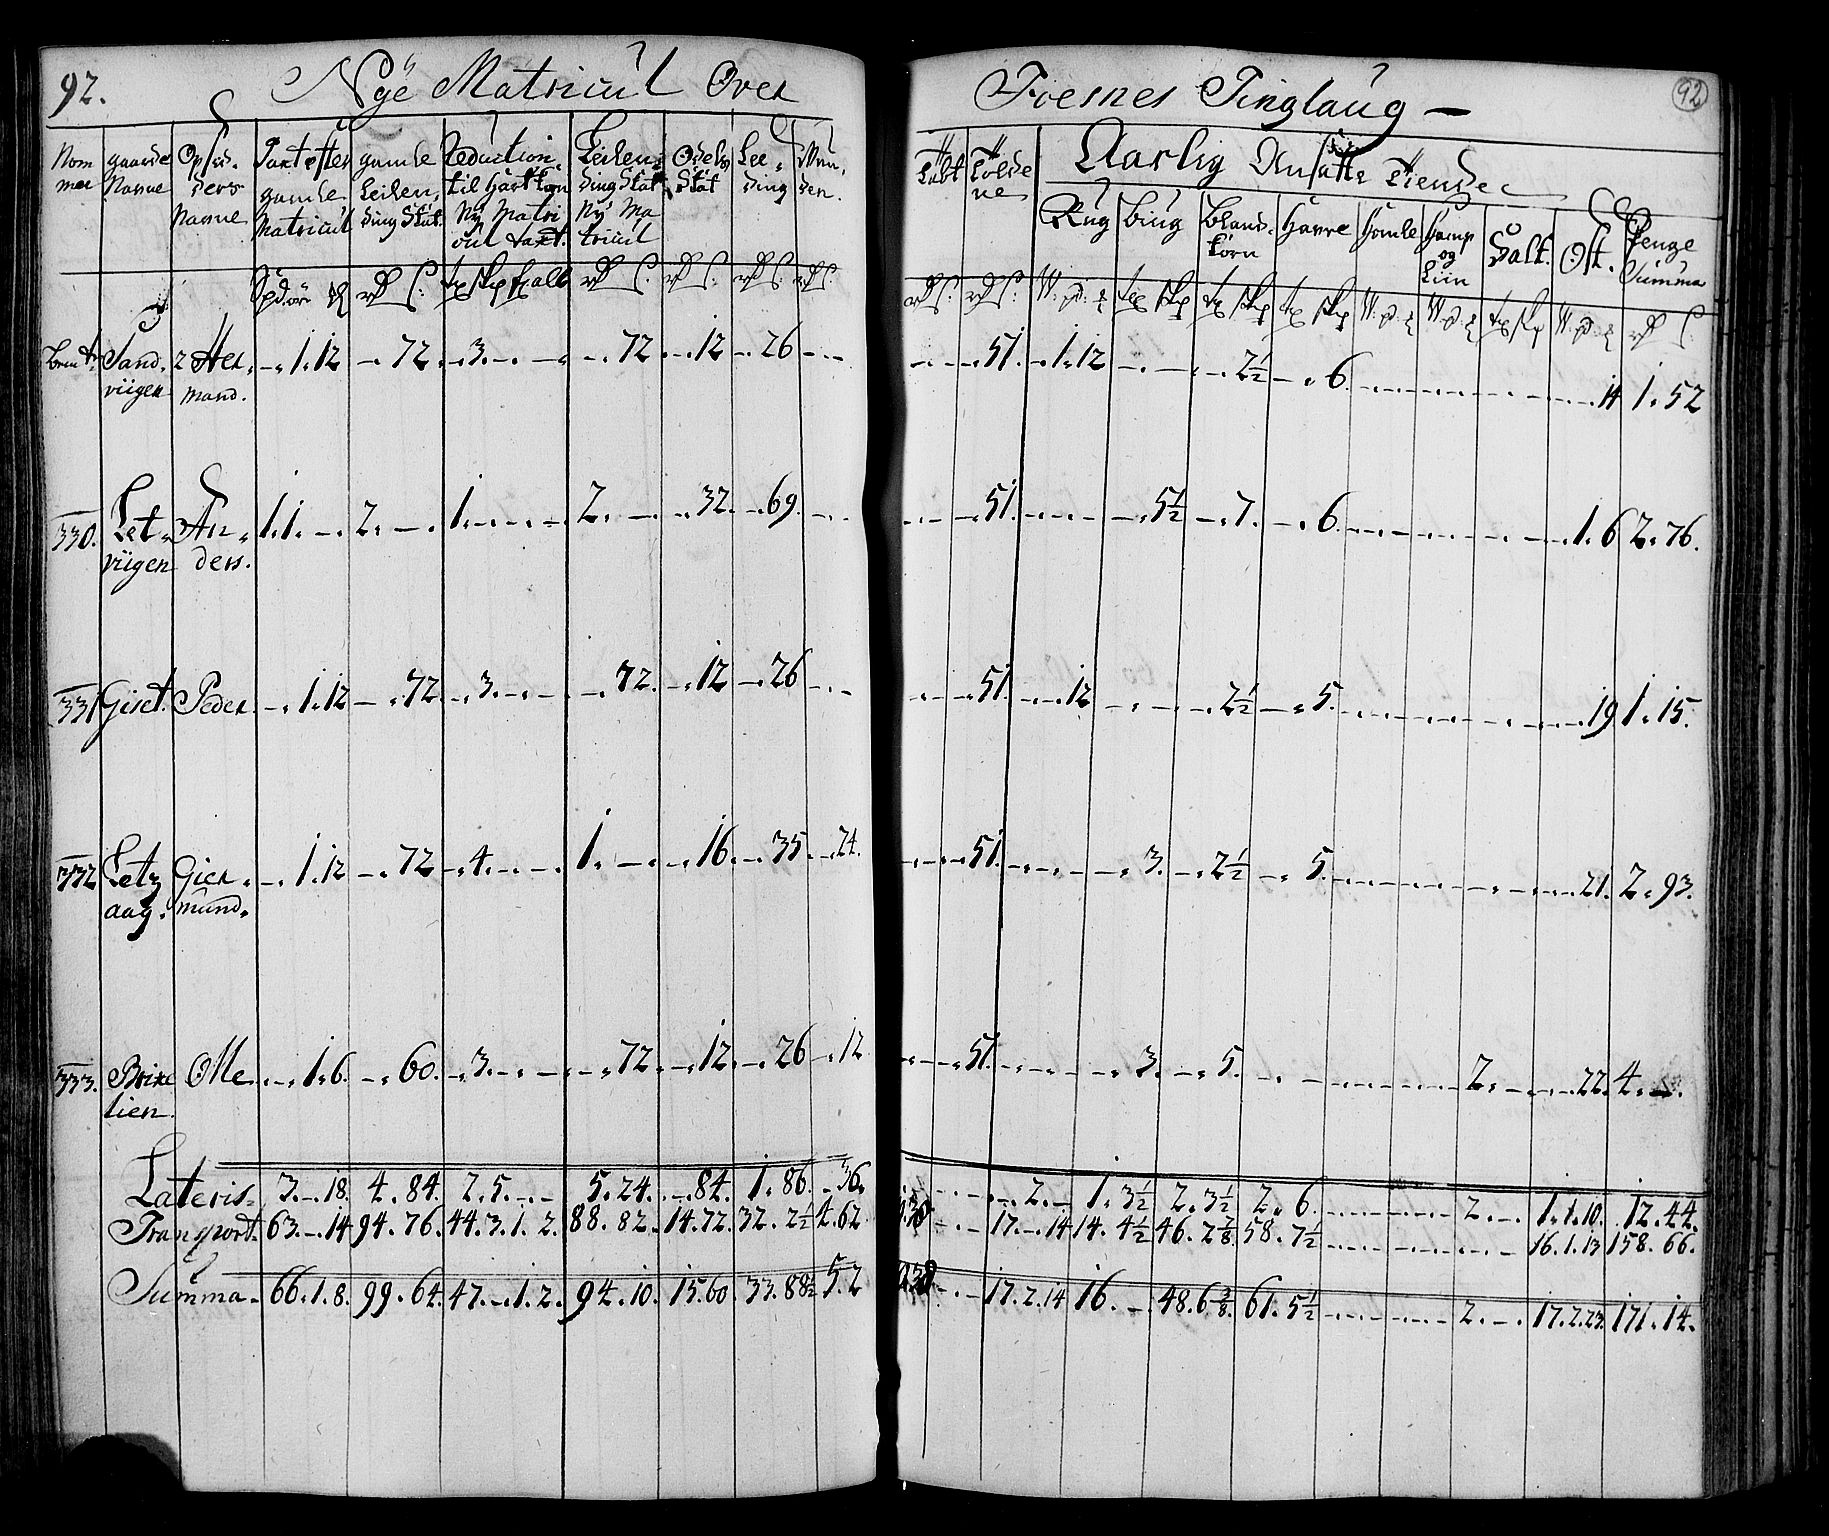 92. Nye Matricul Over Foesnes Tinglaug — 92
Nom mer | gaarde Nafne | Opsid. ders Nafne | Taxt efter gamle Matricul | gamle Leilen, ding Skat | Reduction til Hartkorn Ny Matri cul taxt. | Leilen, ding Skat Ny Ma tricul | Odels Skat | Lee, ding
Aarlig Ansatte Tiende
Rug | bÿg | bland, korn | Havre | Homle | Hamp og Liin | Salt. | Ost. | Penge Summa
Sand, viigen | 2 Her, mand. | 1. 12 | 72. | 3. | 72. | 12 | 26 | 51. | 1. 12 | 2½ | 6. | 14 | 1. 52
330. | Let, viigen | An, ders. | 1. 1. | 2. | 1. | 2. | 32. | 69. | 51. | 5½ | 7. | 6. | 1. 6 | 2. 76.
331 | Giset. | Peder. | 1. 12 | 72. | 3. | 72. | 12 | 26 | 51. | 12 | 2½ | 5. | 19 | 1. 15.
332 | Letz aag. | Gier, mund. | 1. 12 | 72 | 4. | 1. | 16. | 35 | 24. | 51. | 3. | 2½ | 5. | 21. | 2. 93.
333. | lien. | Olle. | 1. 6. | 60. | 3. | 72. | 12. | 26 | 12 | 51. | 3. | 5. | 2. | 22. | 4.
Lateris. | 3. 18. | 4. 84. | 2. 5. | 5. 24. | 84. | 1. 86. | 36. | 2. | 1. 3½ | 2. 3½ | 2. 6. | 2. | 1. 1. 10. | 12. 44.
Transport. | 63. 14 | 94. 76. | 44. 3. 1. 2. | 88. 82. | 14. 72. | 32. 2½ | 4. 62. | 17. 14 | 14. 4½ | 46. 2⅞ | 58. 7½ | 16. 1. 13 | 158. 66.
Summa. | 66. 1. 8. | 99. 64. | 47. 1. 2. | 94. 10. | 15. 60. | 33. 88½ | 5. 2 | 17. 2. 14 | 16. | 48. 6⅜ | 61. 5½ | 2. | 17. 2. 23. | 171. 14.